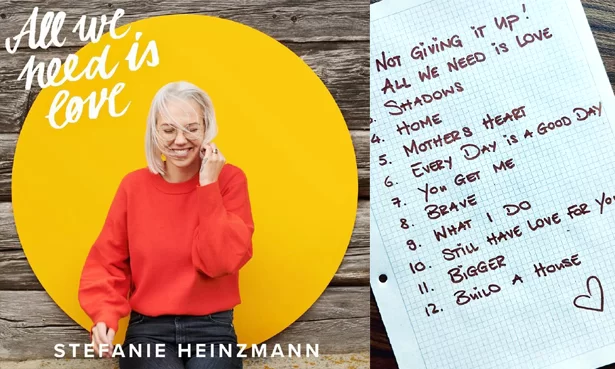 All we
need is
love
STEFANIE HEINZMANN
NOT GIVING IT UP!
ALL WE NEED IS LOVE
SHADOWS
4. HOME
5. MOTHERS HEART
6. EVERY DAY IS A GOOD DAY
7. YOU GET ME
8. BRAVE
9. WHAT I DO
10. STILL HAVE LOVE FOR YOU
11. BIGGER
12. BUILD A HOUSE